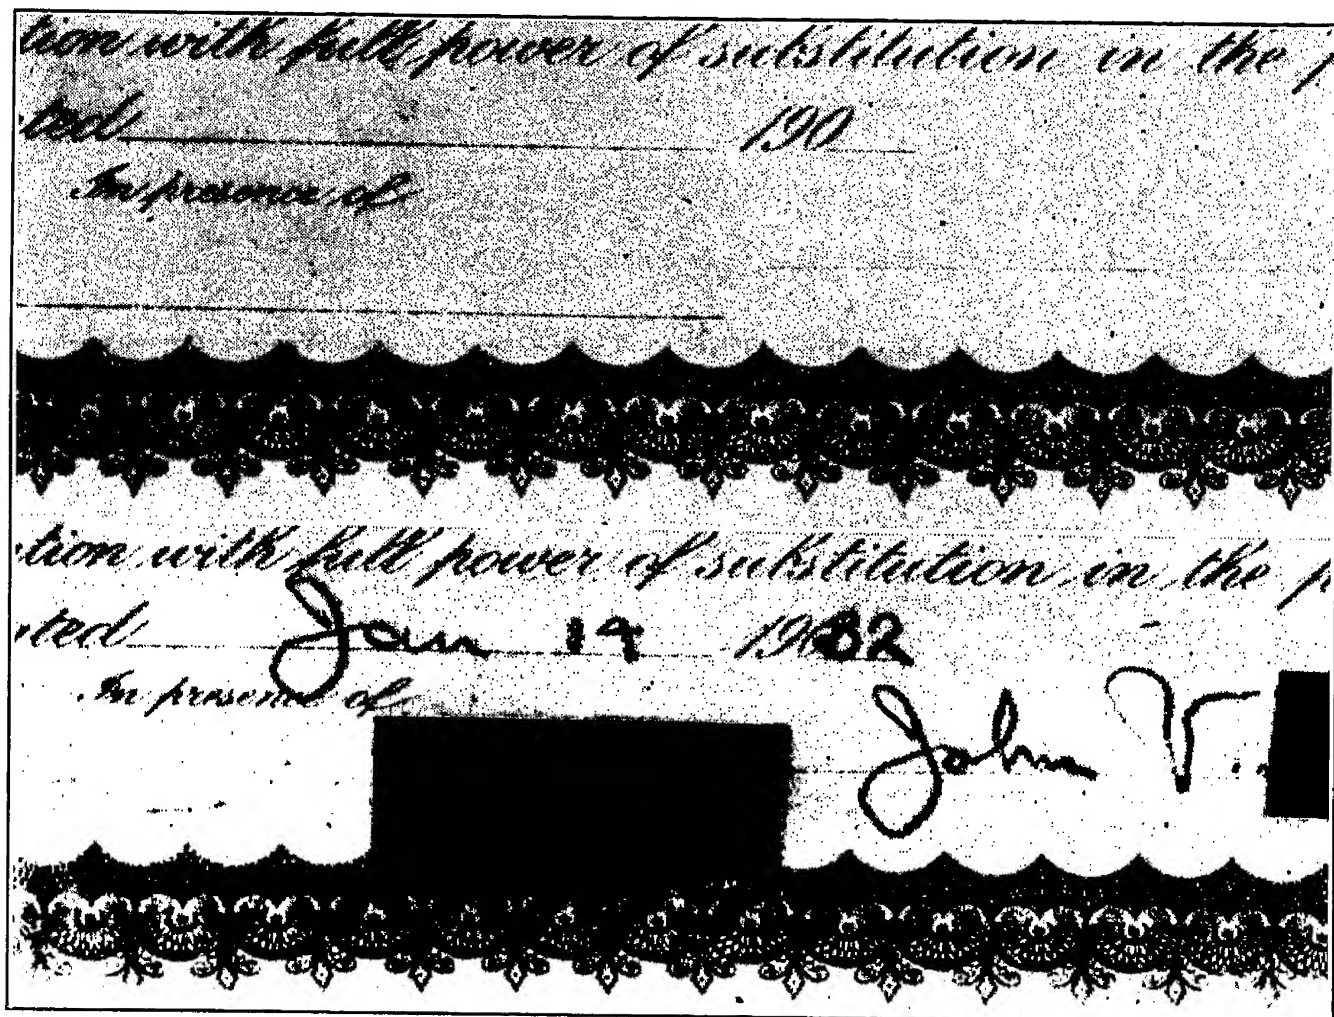 tion with full power of substitution in the
ted 190
In presence of
tion with full power of substitution in the
ted Jan 19 1932
In presence of
John V.